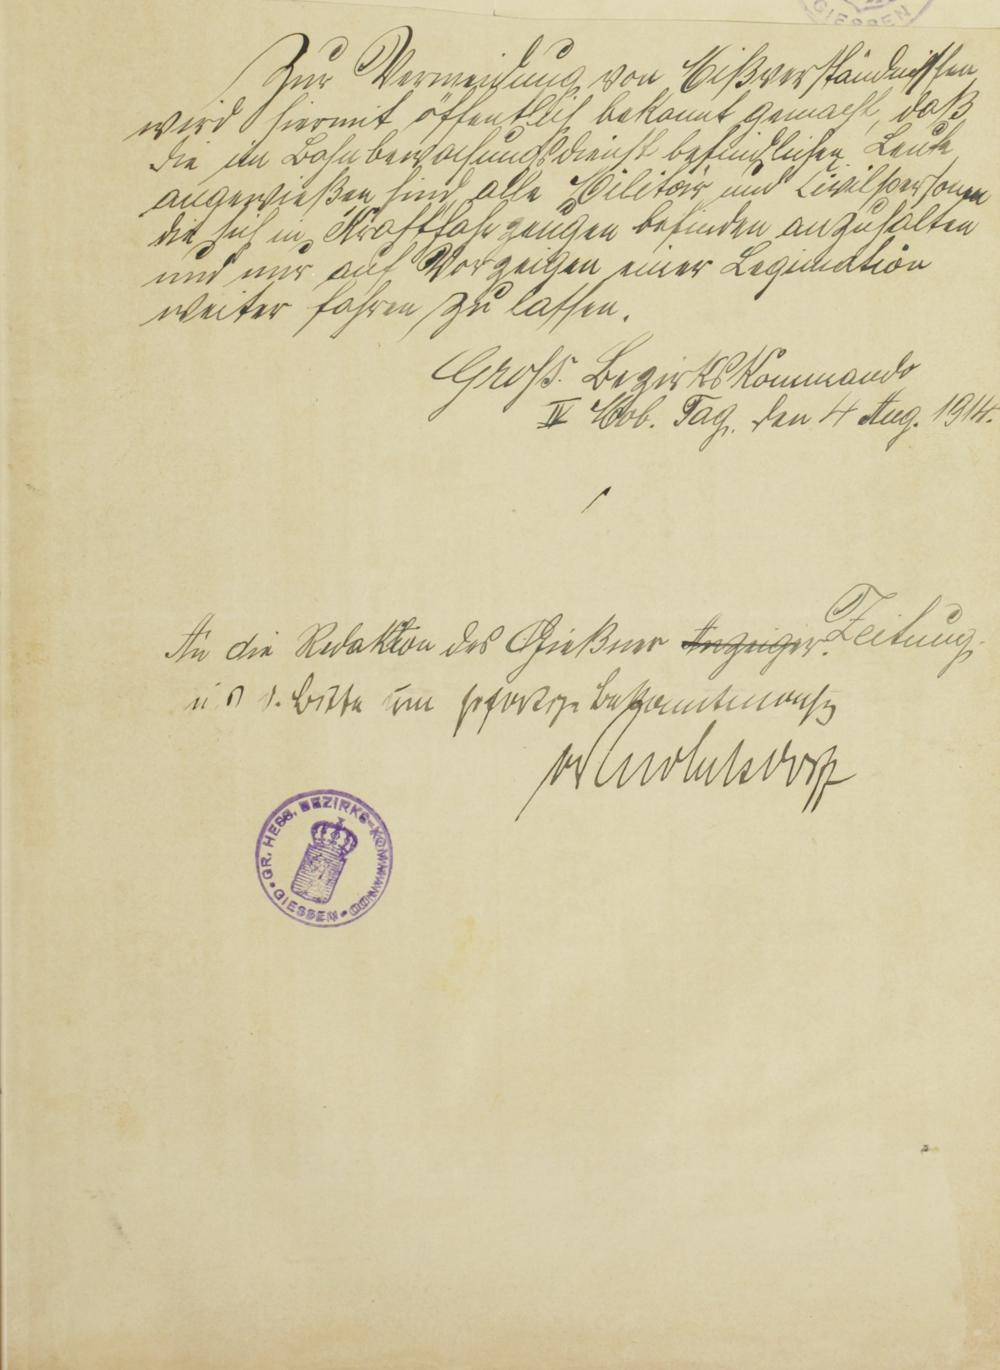 GIESSEN
Zur Vermeidung von Mißverständnissen
wird hiermit öffentlich bekannt gemacht, daß
die im Bahnbewachungsdienst befindlichen Leute
angewießen sind alle Militär und Civilpersonen
die sich in Kraftfahrzeugen befinden anzuhalten
und nur auf Vorzeigen einer Legimation
weiter fahren zu lassen.
Großh. Bezirkskommando
IV Mob. Tag, den 4 Aug. 1914.
An die Redaktion des Gießner Anzeiger. Zeitung.
Bitte um sofortige Bekanntmachg
GR. HESS. BEZIRKS-KOMMANDO
GIESSEN